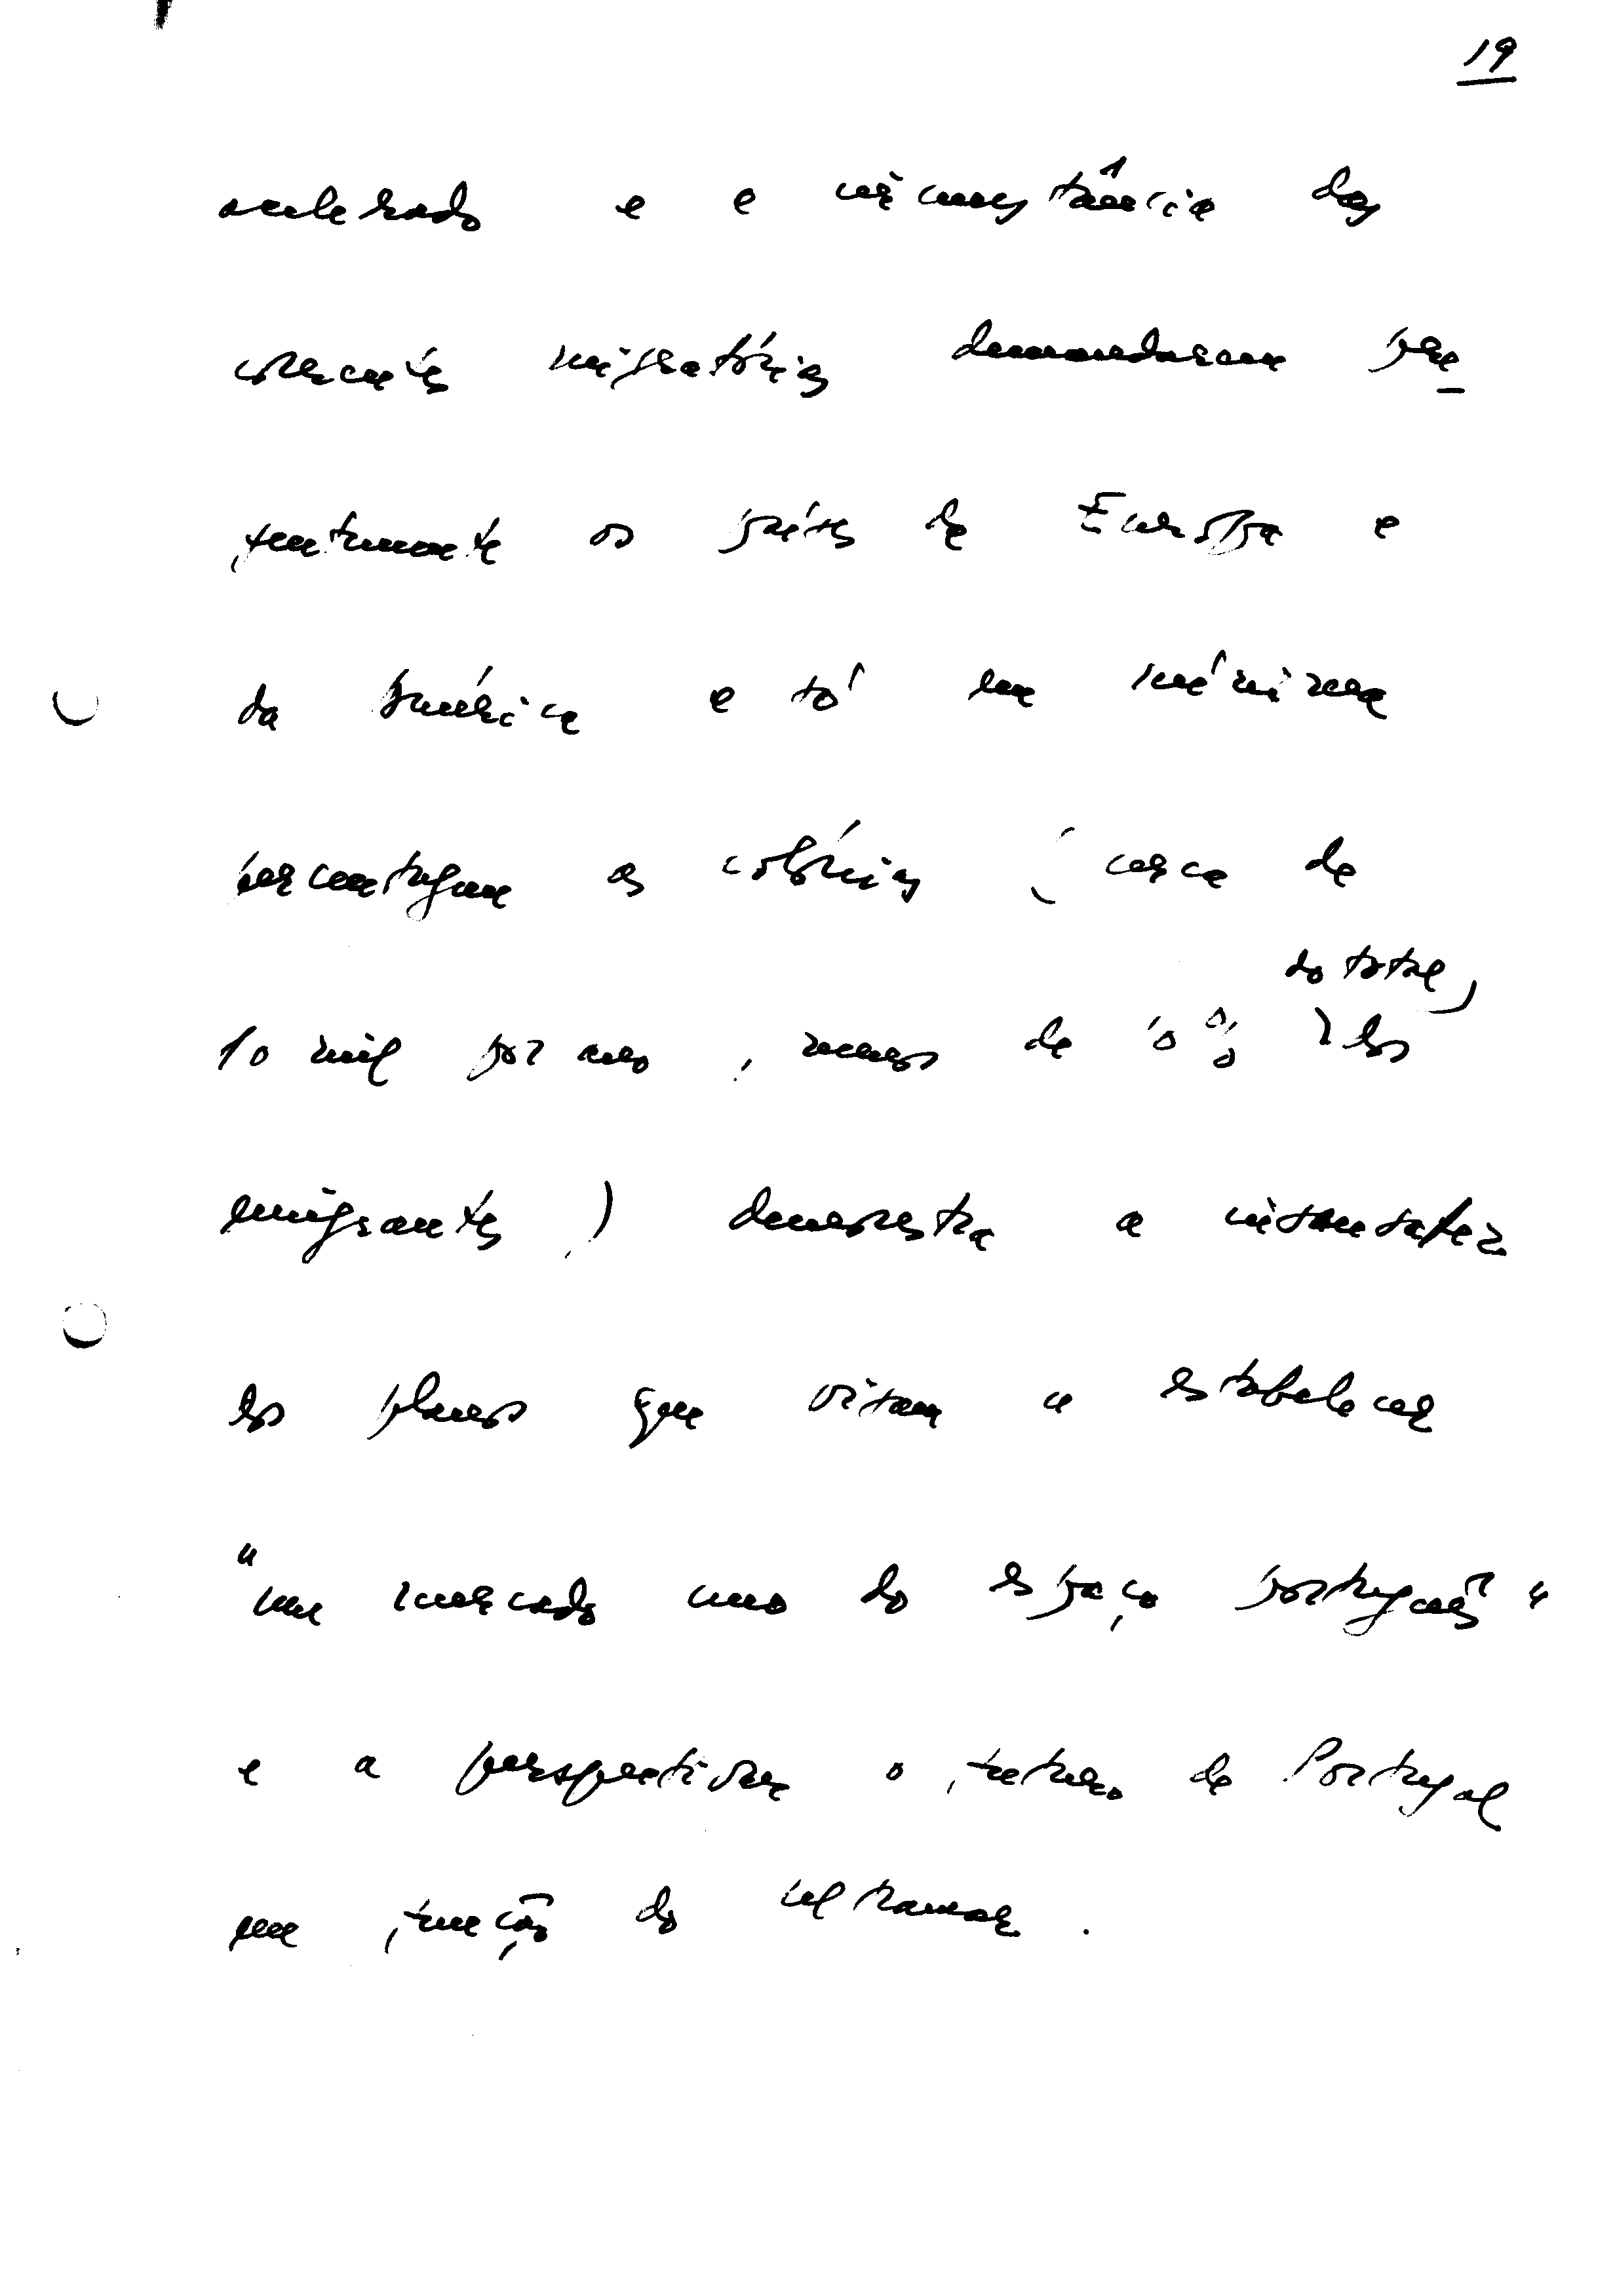 19
acelerado e a circunstância das
correntes migratórias demandarem pre
ferentemente os países da Europa e
da América e só em mínima
percentagem as colónias (cerca de
do total,
10 mil por ano, menos de 10% dos
emigrantes) demonstra a insensatez
dos planos que visam a estabelecer
"um mercado uno do espaço português"
e a perspectivar o futuro de Portugal
em função do ultramar.